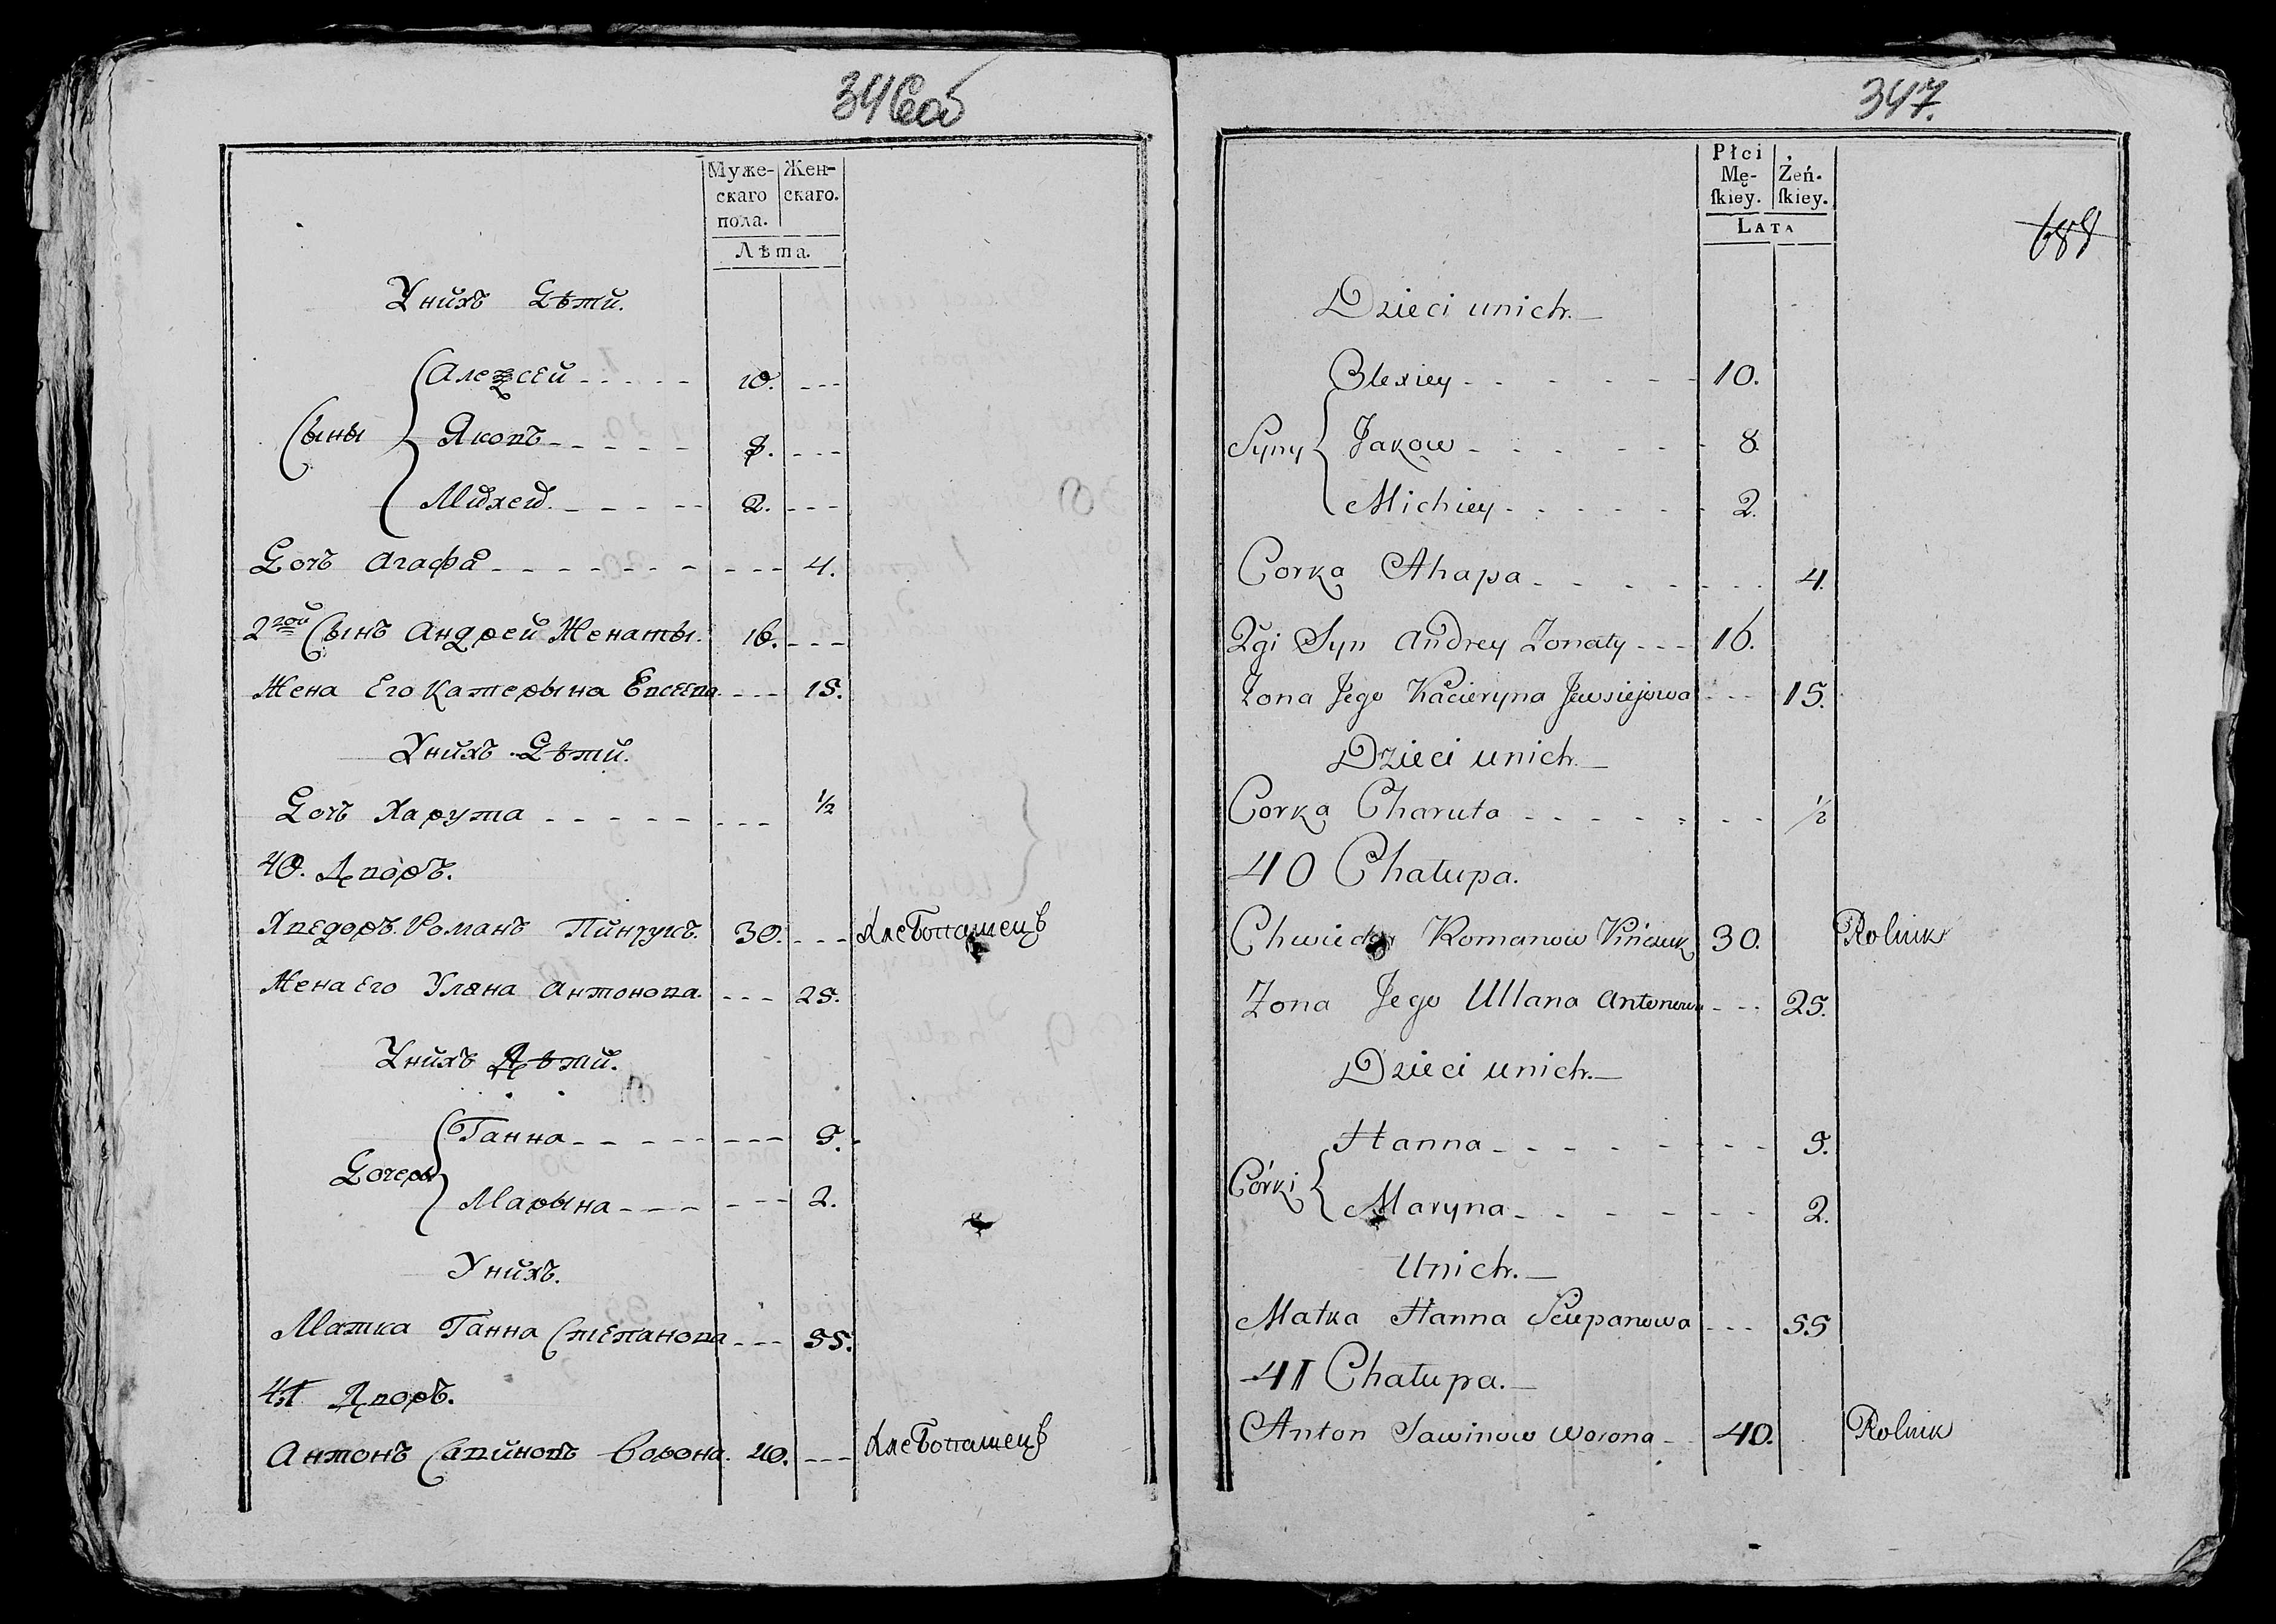 346об
Муже-
скаго
пола.
Жен-
скаго.
Лѣта.
Унихъ Дѣти.
Сыны
Алексей 10.
Яковъ 8.
Михей 2.
Дочъ Агафа 4.
2гой Сынъ Андрей Женаты. 16.
Жена Его Катерына Евсеева 15.
Унихъ Дѣти.
Дочъ Харута ½
40. Дворъ.
Хведоръ Романъ 30. Хлебопашецъ
Жена Его Уляна Антонова 25.
Унихъ Дѣти.
Дочеры
Ганна 5.
Марына 2.
Унихъ.
Матка Ганна Степанова 55.
41 Дворъ.
Антонъ Савиновъ Ворона. 40. Хлебопашецъ
347.
Płci
Mę-
ſkiey.
Żeń-
ſkiey.
LATA
Dzieci unich.
Syny
Alexiey 10.
Jakow 8
Michiey 2.
Corka Ahapa 4.
2gi Syn Andrey Zonaty 16.
Zona Jego Kacieryna Jewsiejowa 15.
Dzieci unich.
Corka Charuta ½
40 Chałupa.
Chwiedor Romanow 30. Rolnik
Zona Jego Ullana Antonowa 25.
Dzieci unich.
Córki
Hanna 5.
Maryna 2.
Unich.
Matka Hanna Sciepanowa 55
41 Chałupa.
Anton Sawinow Worona 40. Rolnik